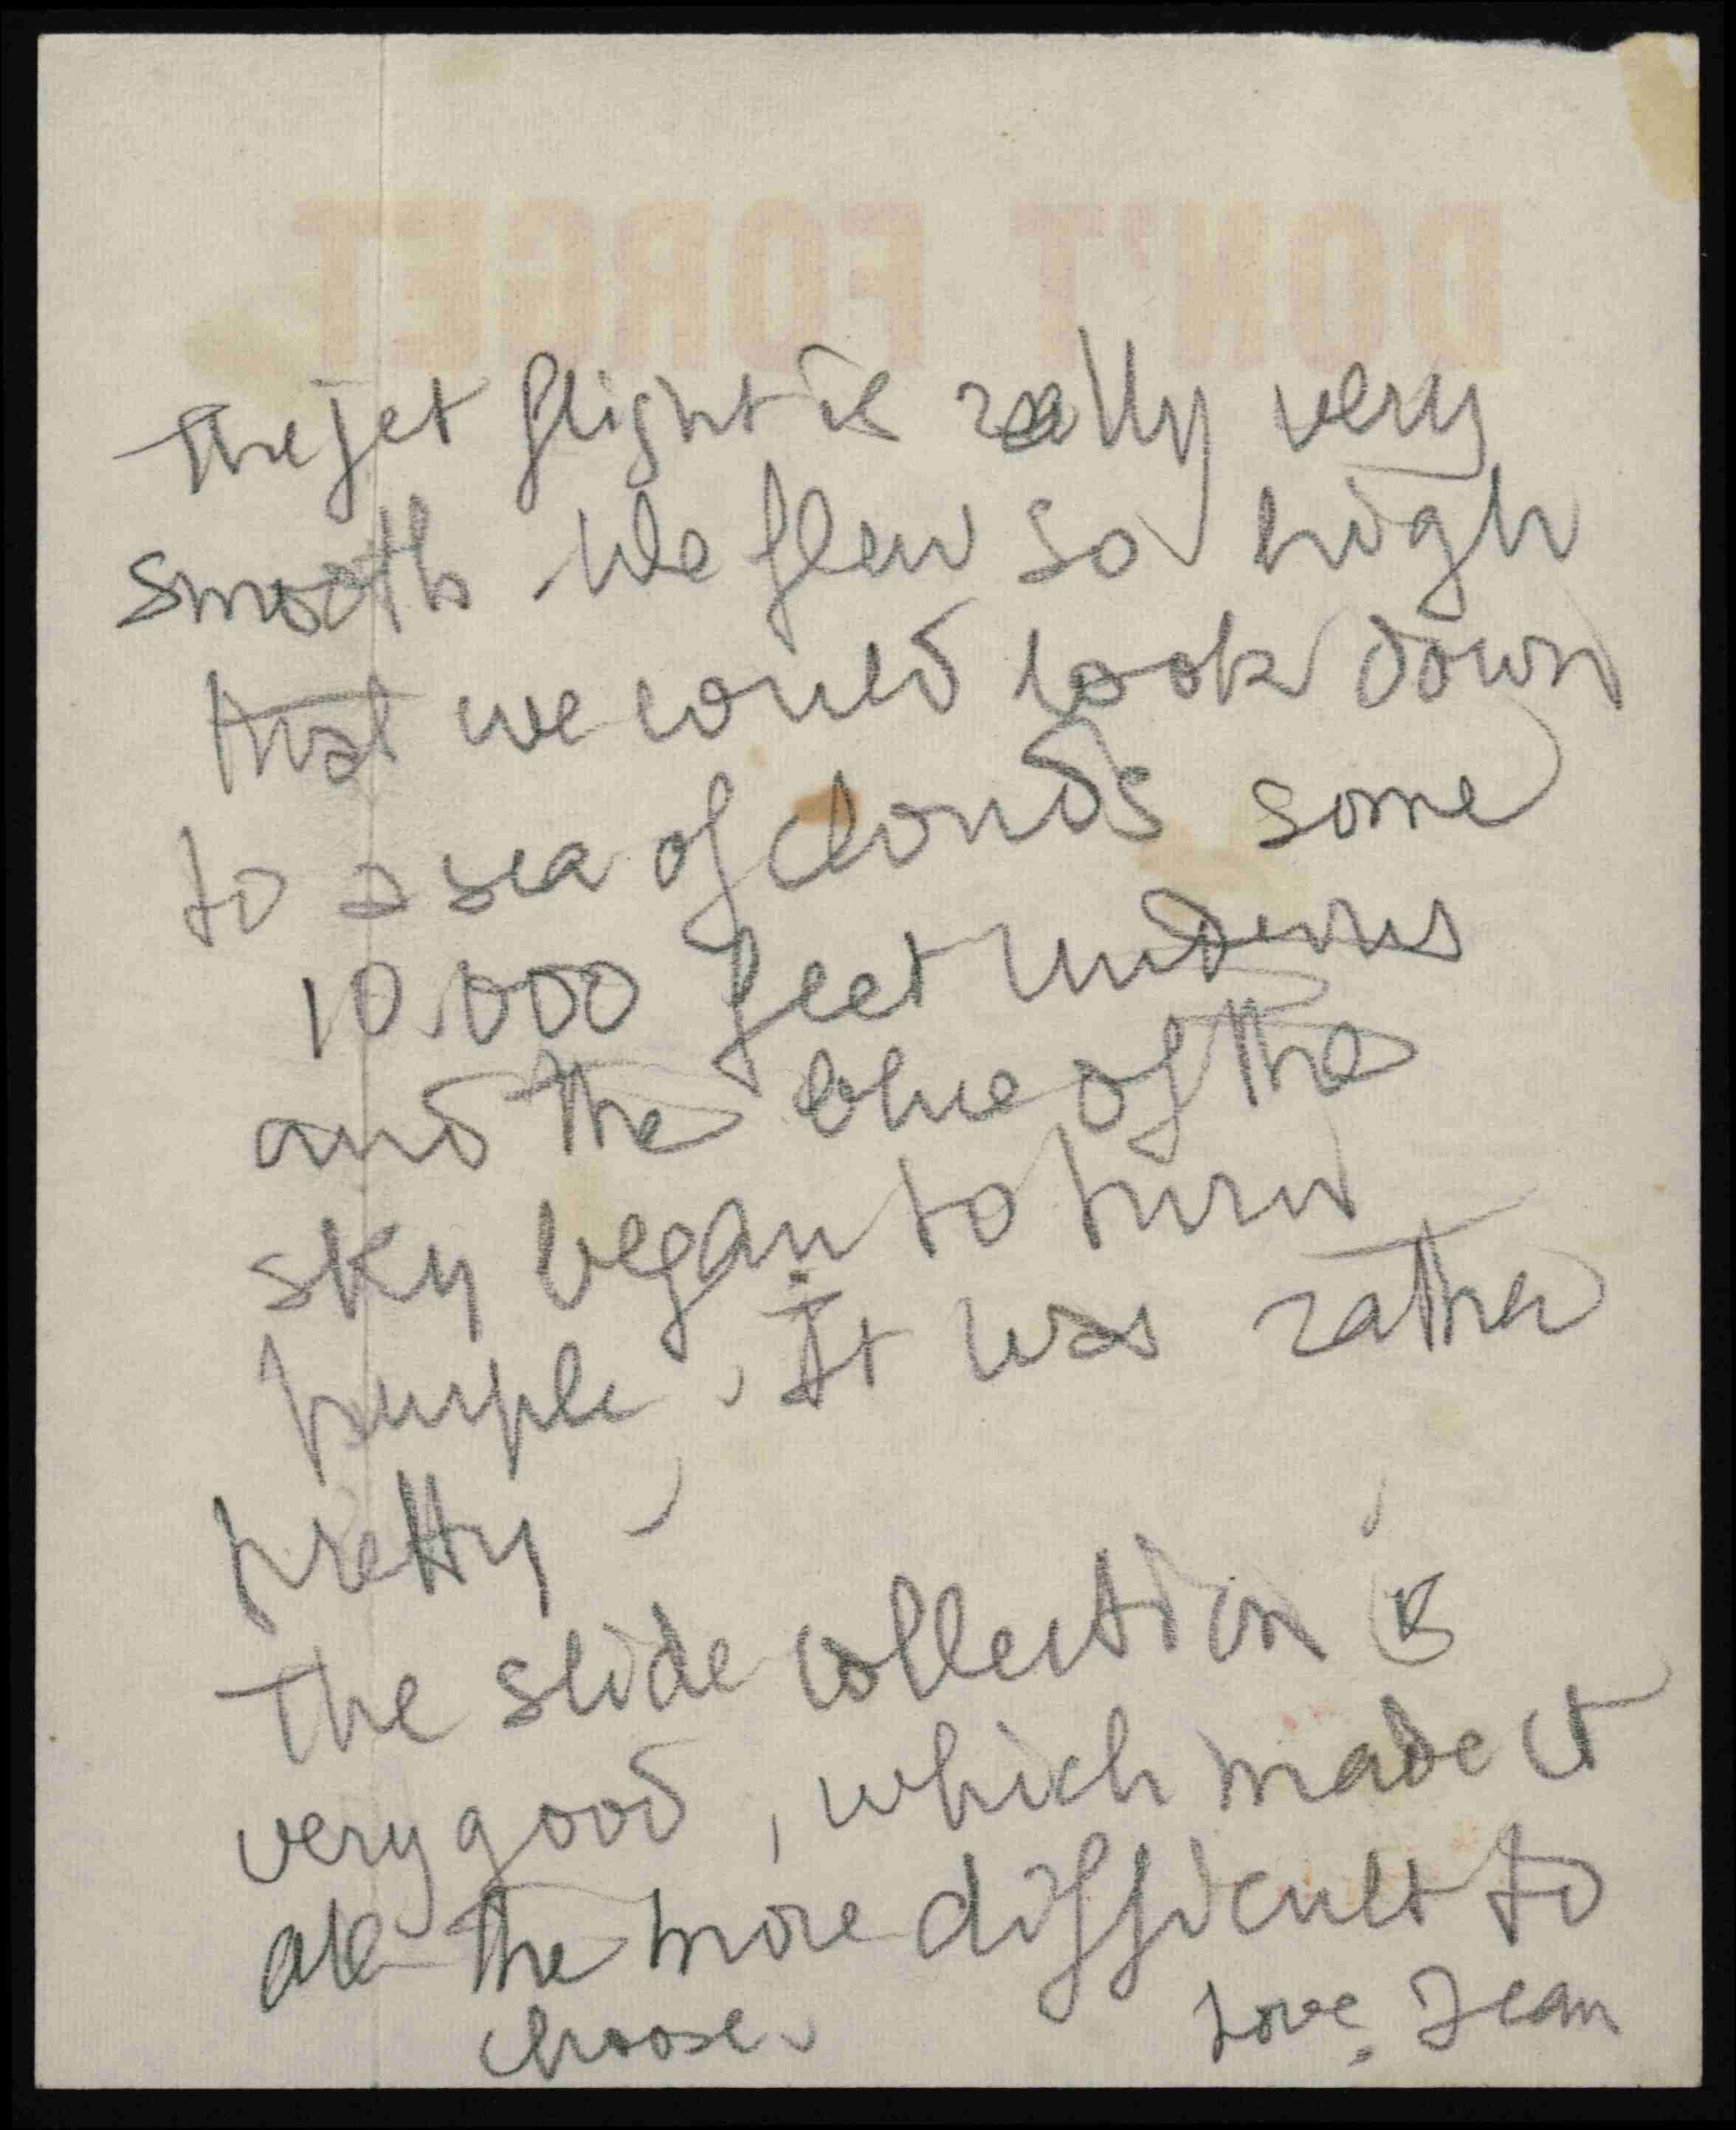 DON'T FORGET
The jet flight is really very
smooth. We flew so high
that we could look down
to a sea of clouds some
10.000 feet under us
and the blue of the
sky began to turn
purple. It was rather
pretty
The slide collection is
very good, which made it
all the more difficult to
choose.
Love, Jean